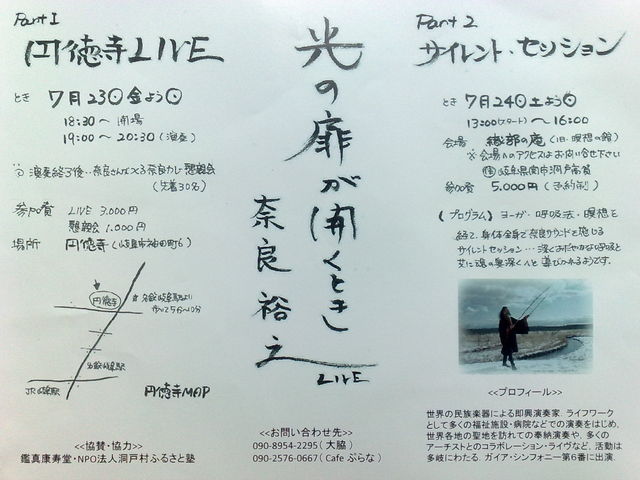 Part 1
円徳寺LIVE
とき 7月23日金よう日
18:30～ 開場
19:00～20:30 (演奏)
演奏終了後‥奈良さんがつくる奈良カレー懇親会
(先着30名)
参加費 LIVE 3,000円
懇親会 1,000円
場所 円徳寺 (岐阜市神田町6)
円徳寺
名鉄岐阜駅より
歩いて5～10分
名鉄岐阜駅
JR岐阜駅
円徳寺MAP
<<協賛・協力>>
鑑真康寿堂・NPO法人洞戸村ふるさと塾
光の扉が開くとき
奈良裕之
LIVE
<<お問い合わせ先>>
090-8954-2295(大脇)
090-2576-0667(Cafe ぷらな)
Part 2
サイレント・セッション
とき 7月24日土よう日
13:00(スタート)～16:00
会場 織部の庵 (旧・瞑想の館)
※会場へのアクセスはお問い合せ下さい
岐阜県関市洞戸高賀
参加費 5,000円 (予約制)
(プログラム) ヨーガ・呼吸法・瞑想を
経て、身体全身で奈良サウンドを感じる
サイレントセッション…深くおだやかな呼吸と
共に魂の奥深くへと導びかれるようです。
<<プロフィール>>
世界の民族楽器による即興演奏家. ライフワーク
として多くの福祉施設・病院などでの演奏をはじめ,
世界各地の聖地を訪れての奉納演奏や, 多くの
アーチストとのコラボレーション・ライヴなど, 活動は
多岐にわたる. ガイア・シンフォニー第6番に出演.